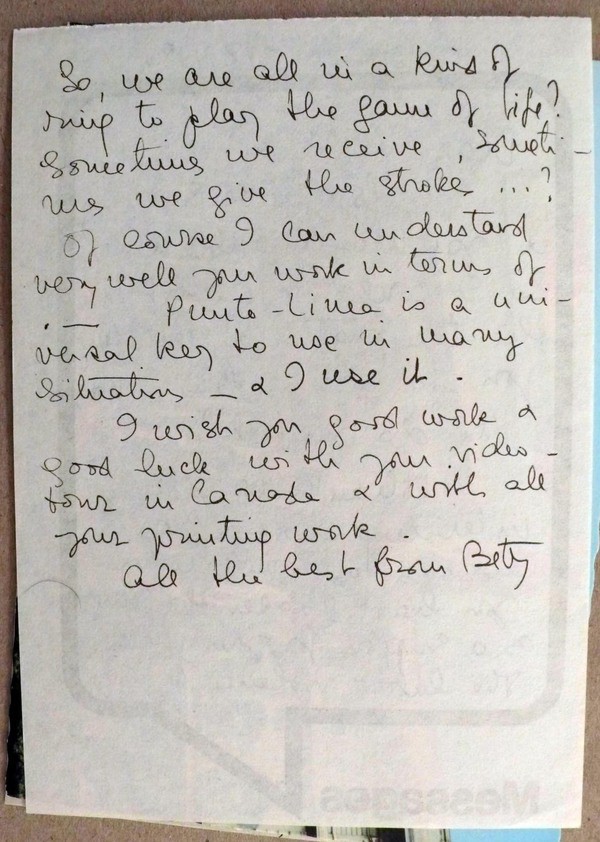 So, we are all in a kind of
ring to play the game of life?
Sometimes we receive, someti-
mes we give the strokes ...?
Of course I can understand
very well your work in terms of
. — Punto-Linea is a uni-
versal key to use in many
situations — & I use it.
I wish you good work &
good luck with your video-
tour in Canada & with all
your printing work.
All the best from Betty
Messages